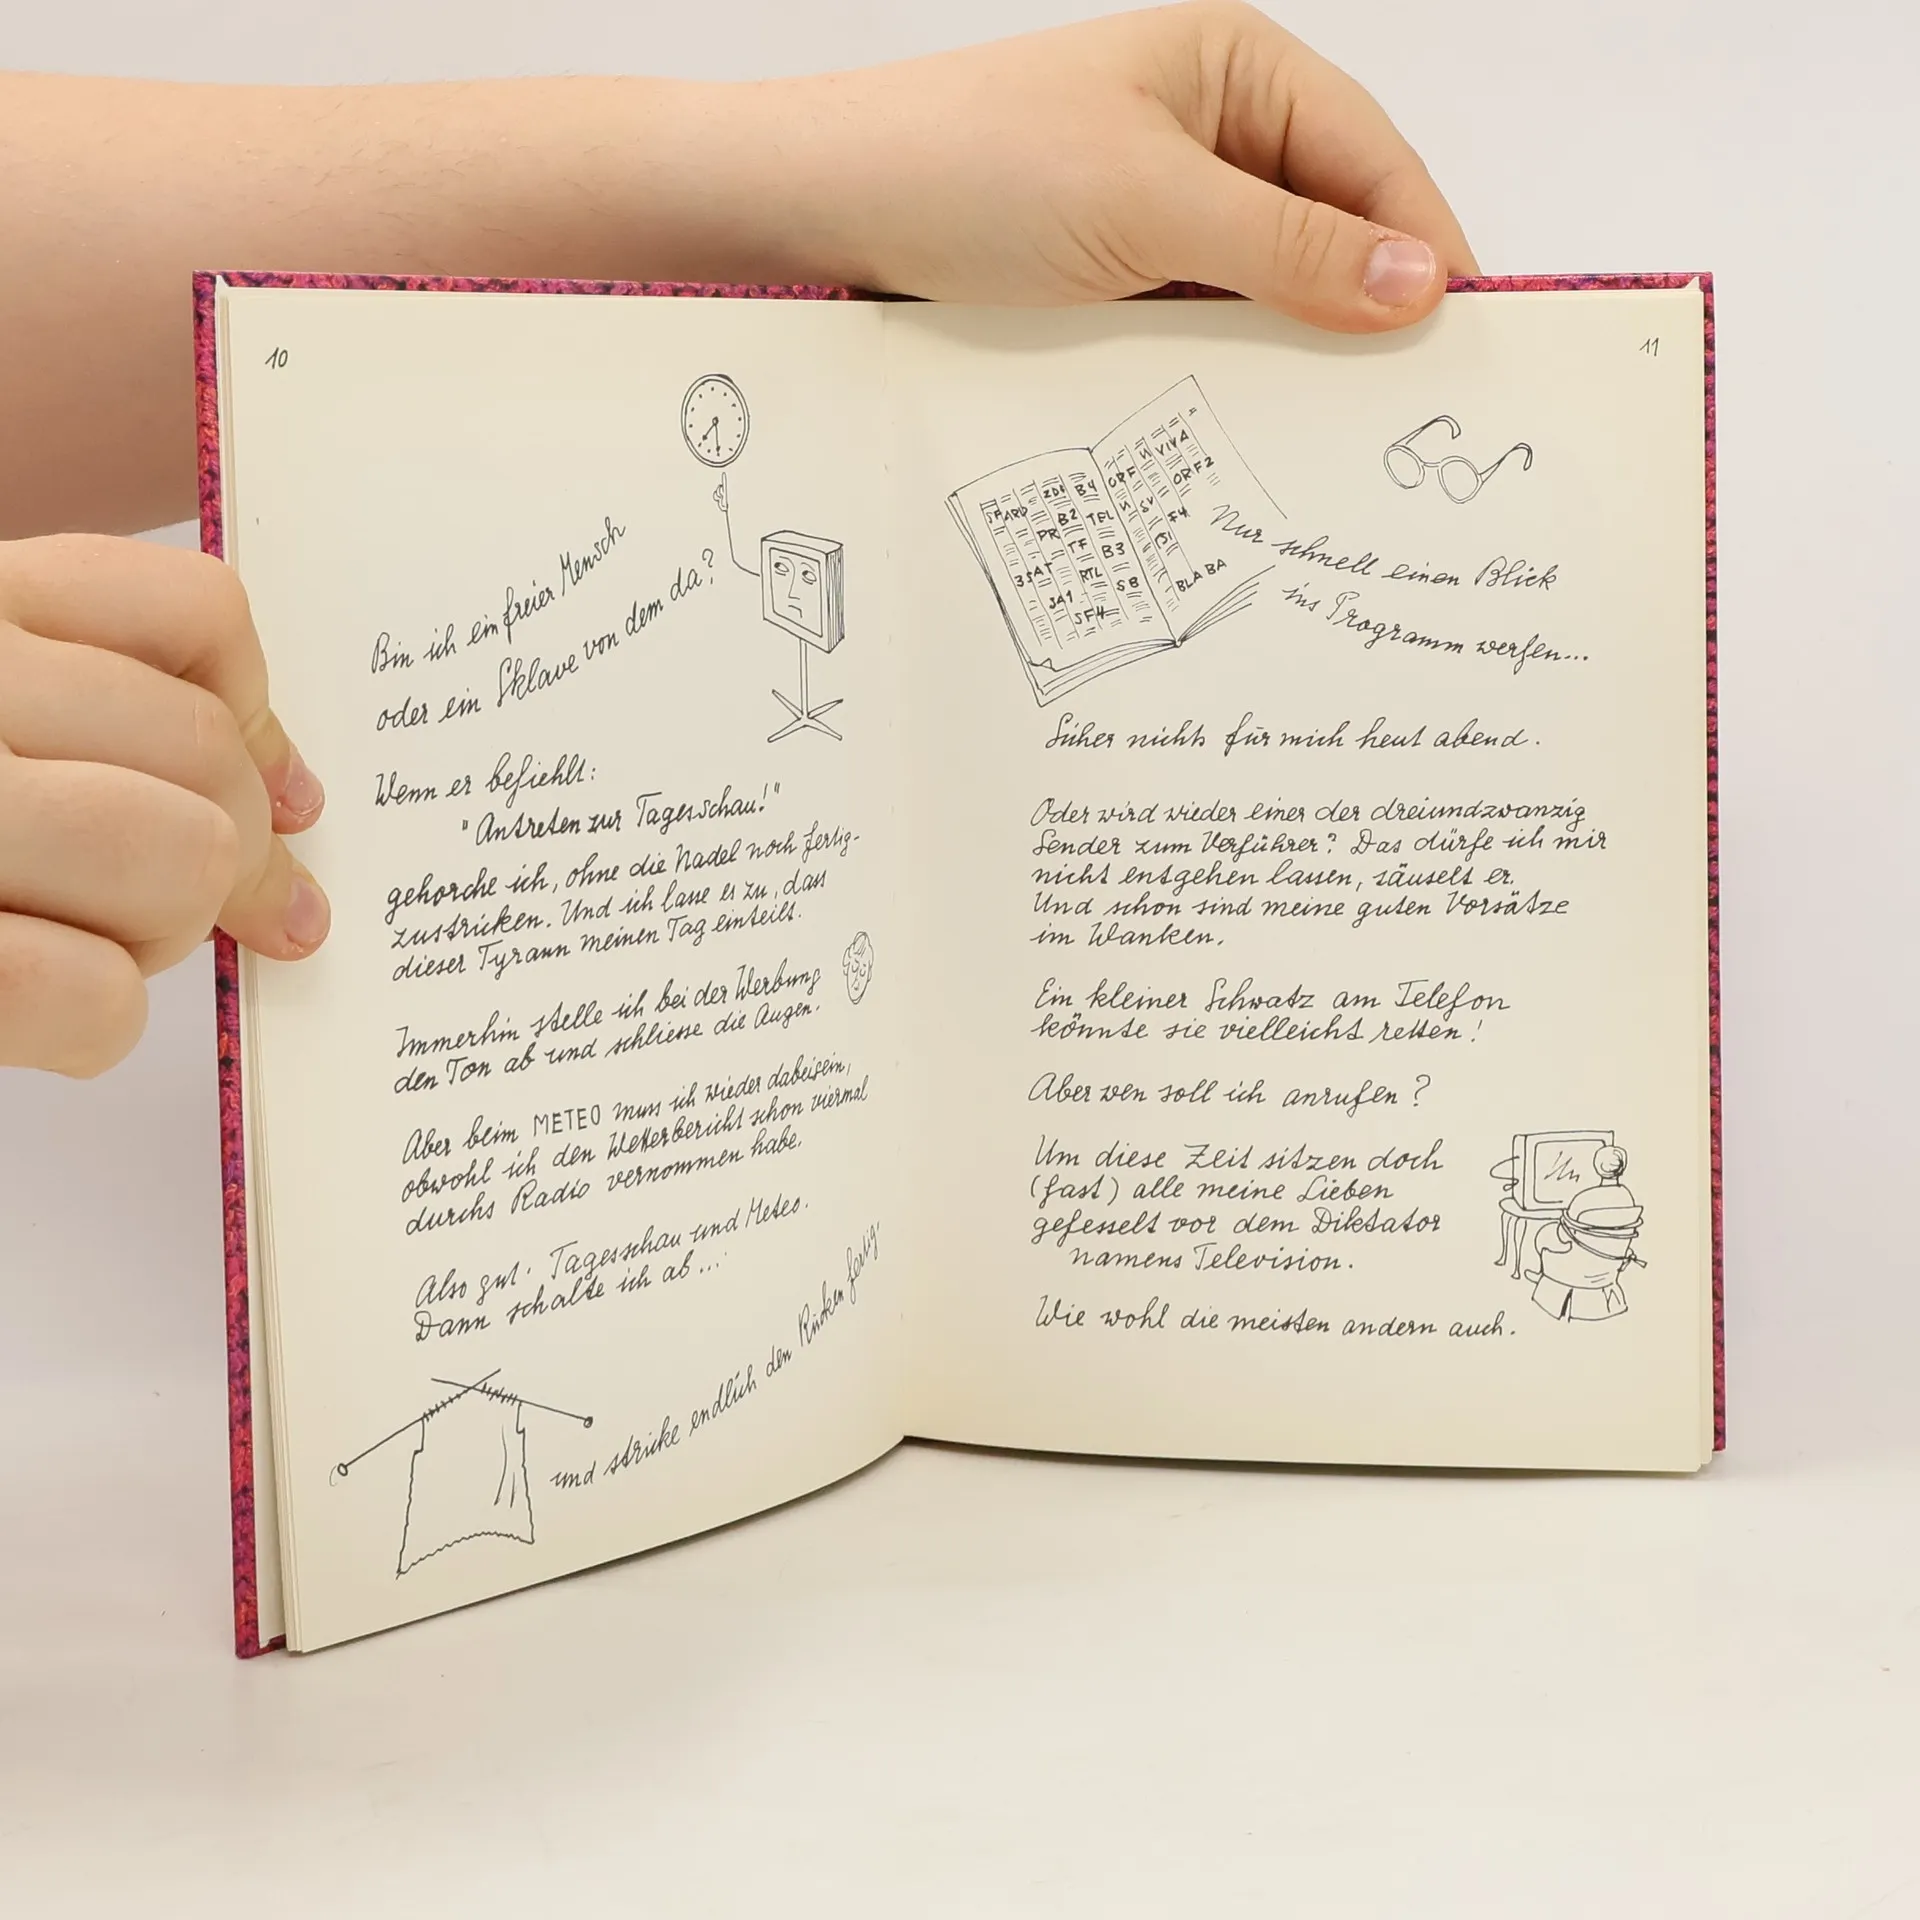 10
Bin ich ein freier Mensch
oder ein Sklave von dem da?
Wenn er befiehlt:
"Antreten zur Tagesschau!"
gehorche ich, ohne die Nadel noch fertig-
zustricken. Und ich lasse es zu, dass
dieser Tyrann meinen Tag einteilt.
Immerhin stelle ich bei der Werbung
den Ton ab und schliesse die Augen.
Aber beim METEO muss ich wieder dabeisein,
obwohl ich den Wetterbericht schon viermal
durchs Radio vernommen habe.
Also gut. Tagesschau und Meteo.
Dann schalte ich ab...
und stricke endlich den Rücken fertig.
11
SF ARD ZDF B4 ORF VIVA
PR B2 TEL SV ORF2
3SAT TF B3 F4
SA1 RTL SB
SF4 BLA BA
Nur schnell einen Blick
ins Programm werfen...
Sicher nichts für mich heut abend.
Oder wird wieder einer der dreiundzwanzig
Sender zum Verführer? Das dürfe ich mir
nicht entgehen lassen, säuselt er.
Und schon sind meine guten Vorsätze
im Wanken.
Ein kleiner Schwatz am Telefon
könnte sie vielleicht retten!
Aber wen soll ich anrufen?
Um diese Zeit sitzen doch
(fast) alle meine Lieben
gefesselt vor dem Diktator
namens Television.
Wie wohl die meisten andern auch.